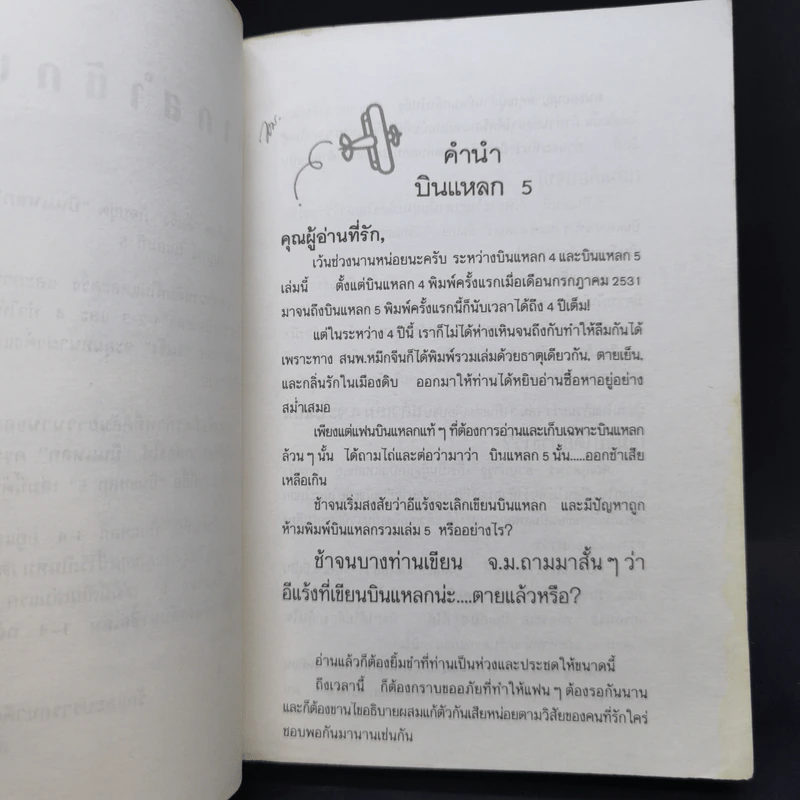 คำนำ
บินแหลก 5
คุณผู้อ่านที่รัก,
เว้นช่วงนานหน่อยนะครับ ระหว่างบินแหลก 4 และบินแหลก 5
เล่มนี้ ตั้งแต่บินแหลก 4 พิมพ์ครั้งแรกเมื่อเดือนกรกฎาคม 2531
มาจนถึงบินแหลก 5 พิมพ์ครั้งแรกนี้ก็นับเวลาได้ถึง 4 ปีเต็ม!
แต่ในระหว่าง 4 ปีนี้ เราก็ไม่ได้ห่างเหินจนถึงกับทำให้ลืมกันได้
เพราะทาง สนพ.หมึกจีนก็ได้พิมพ์รวมเล่มด้วยธาตุเดียวกัน, ตายเย็น,
และกลิ่นรักในเมืองดิบ ออกมาให้ท่านได้หยิบอ่านซื้อหาอยู่อย่าง
สม่ำเสมอ
เพียงแต่แฟนบินแหลกแท้ๆ ที่ต้องการอ่านและเก็บเฉพาะบินแหลก
ล้วนๆ นั้น ได้ถามไถ่และต่อว่ามาว่า บินแหลก 5 นั้น.....ออกช้าเสีย
เหลือเกิน
ช้าจนเริ่มสงสัยว่าอีแร้งจะเลิกเขียนบินแหลก และมีปัญหาถูก
ห้ามพิมพ์บินแหลกรวมเล่ม 5 หรืออย่างไร?
ช้าจนบางท่านเขียน จ.ม.ถามมาสั้นๆ ว่า
อีแร้งที่เขียนบินแหลกน่ะ....ตายแล้วหรือ?
อ่านแล้วก็ต้องยิ้มขำที่ท่านเป็นห่วงและประชดให้ขนาดนี้
ถึงเวลานี้ ก็ต้องกราบขออภัยที่ทำให้แฟนๆ ต้องรอกันนาน
และก็ต้องขานไขอธิบายผสมแก้ตัวกันเสียหน่อยตามวิสัยของคนที่รักใคร่
ชอบพอกันมานานเช่นกัน